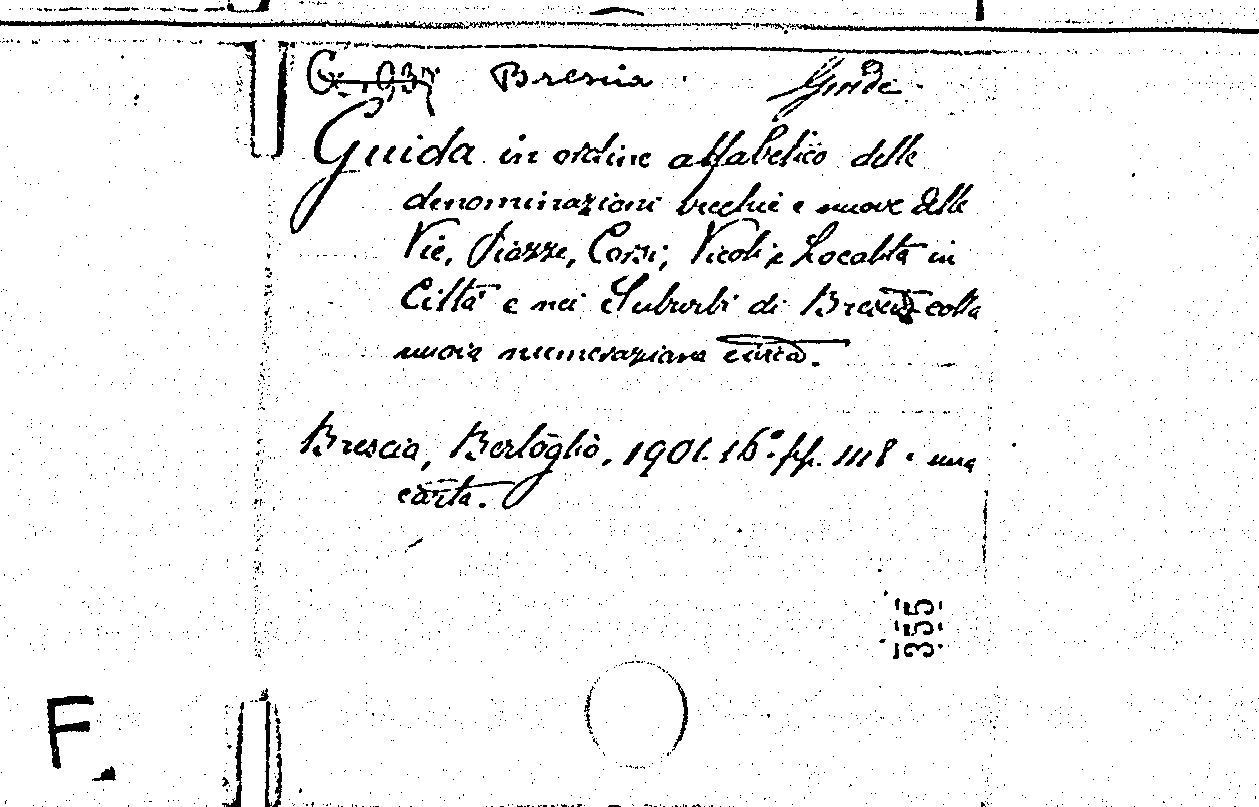 Brescia Guide
Guida in ordine alfabetico delle
denominazioni vecchie e nuove delle
Vie, Piazze, Corsi, Vicoli e Località in
Città e nei Suburbi di Brescia colla
nuova numerazione civica.
Brescia, Bertoglio, 1901. 16° pp. 118 e una
carta.
355
F